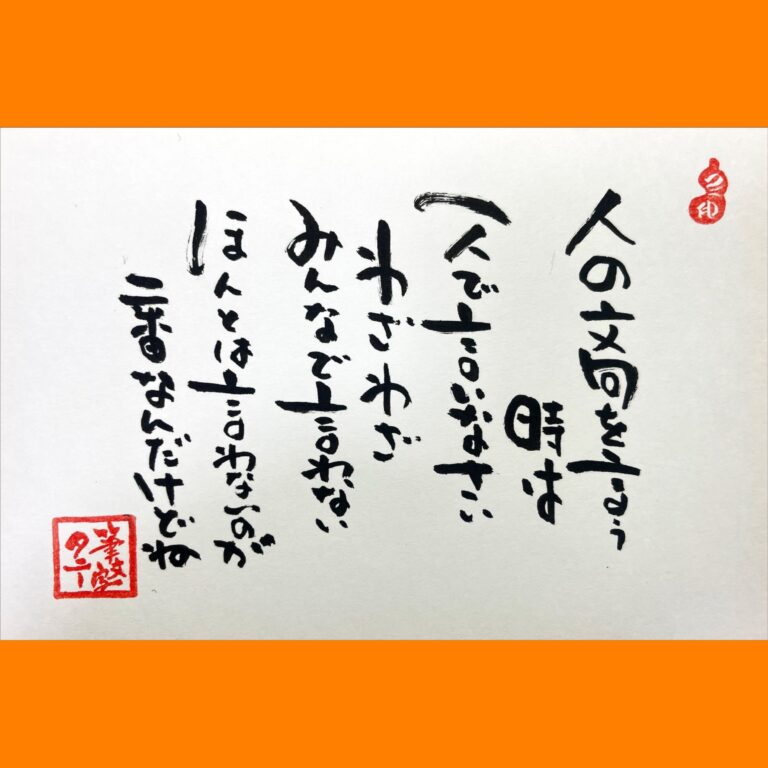 人の文句を言う
時は
一人で言いなさい
わざわざ
みんなで言わない
ほんとは言わないのが
一番なんだけどね